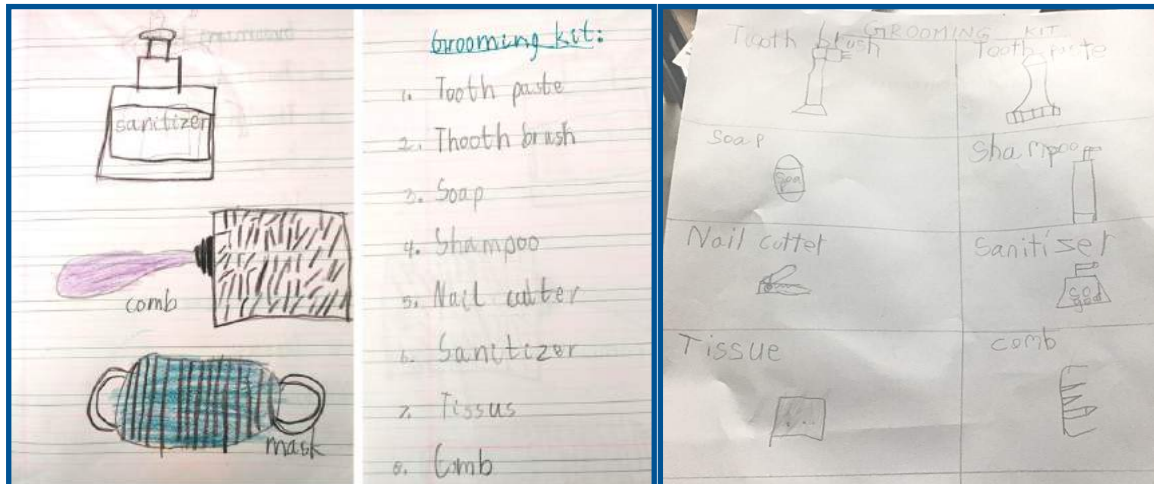 sanitizer
comb
mask
Grooming kit:
1. Tooth paste
2. Thooth brush
3. Soap
4. Shampoo
5. Nail cutter
6. Sanitizer
7. Tissus
8. Comb
GROOMING KIT
Tooth brush
Tooth paste
Soap
Soa
Shampoo
Nail cutter
Sanitiser
Tissue
comb